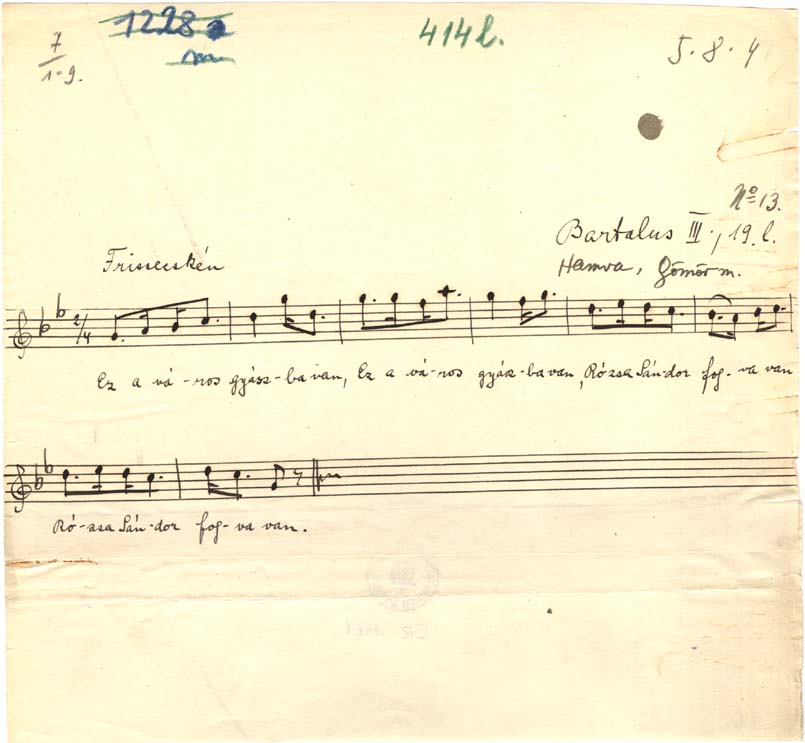 7
1-9.
1228a
m
414l.
5.8.4
Nº 13.
Bartalus III., 19. l.
Hamva, Gömör m.
Frissecskén
2/4
Ez a vá-ros gyász-ba van, Ez a vá-ros gyász-ba van, Rózsa Sándor fog-va van
Ró-zsa Sán-dor fog-va van.